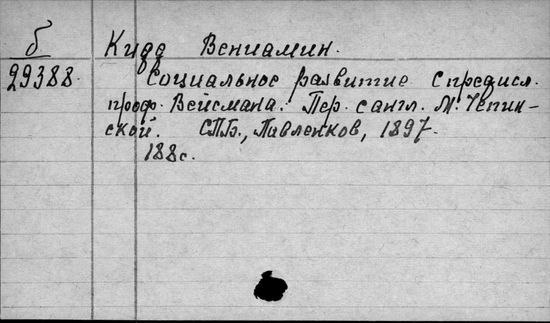 б Кидд Вениамин.
29388. Социальное развитие с предисл.
проф. Вейсмана. Пер. с англ. М. Чепин-
ской. СПБ., Павленков, 1897.
188с.